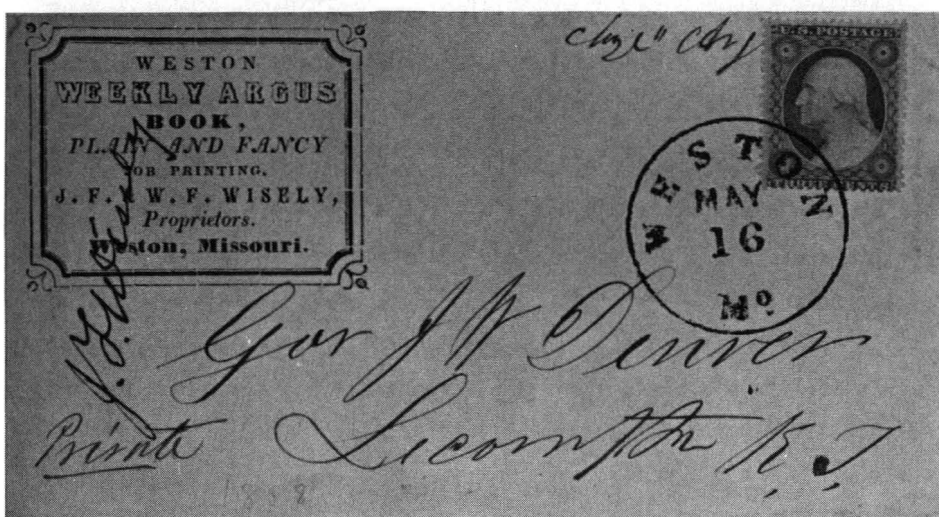 WESTON
WEEKLY ARGUS
BOOK,
PLAIN AND FANCY
JOB PRINTING.
J. F. & W. F. WISELY,
Proprietors.
Weston, Missouri.
U.S. POSTAGE
WESTON
MAY
16
Mo.
Gov J W Denver
Private Lecompton K.T
1858